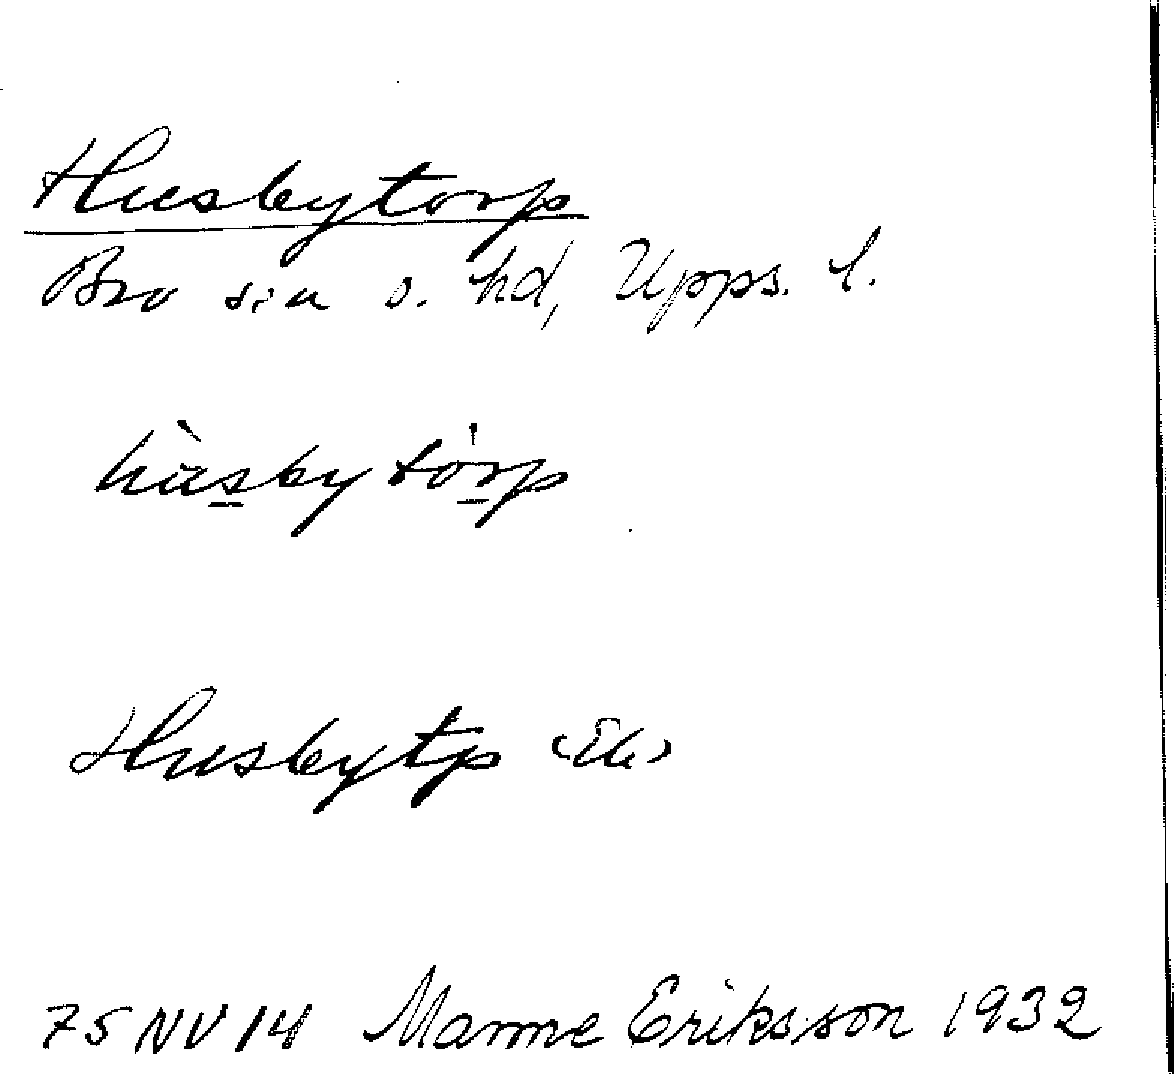 Husbytorp
Bro sn o. hd, Upps. l.
hùsbytórp
Husbytp (Ek)
75 NV 14 Manne Eriksson 1932